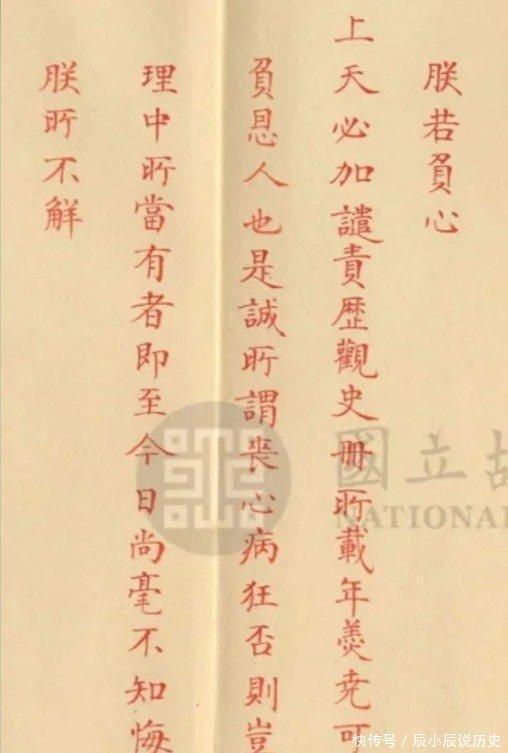 朕若負心
上天必加譴責歷觀史冊所載年羹堯可
負恩人也是誠所謂喪心病狂否則豈
理中所當有者即至今日尚毫不知悔
朕所不解
國立故
NATIONAL
快传号/辰小辰说历史